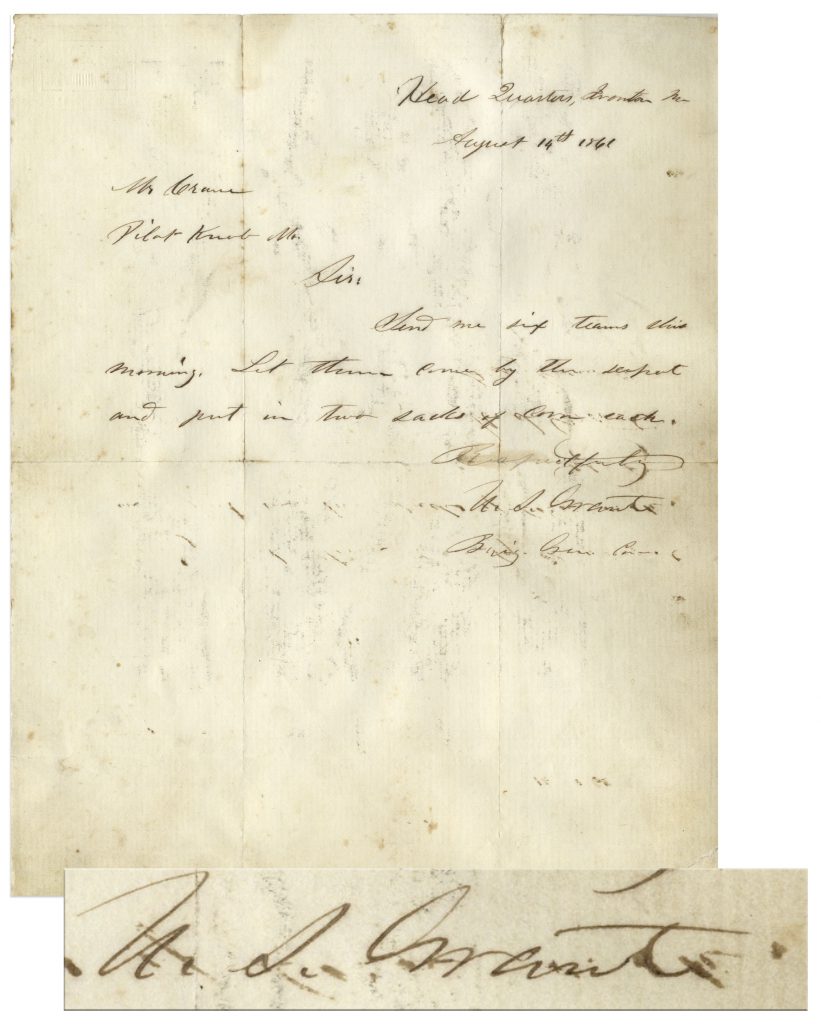 Head Quarters, Ironton Mo
August 14th 1861
Mr Crane
Pilot Knob Mo.
Sir:
Send me six teams this
morning. Let them come by the
and put in two sacks of corn each.
Respectfully
U. S. Grant
Brig. Gen. Com.
U. S. Grant